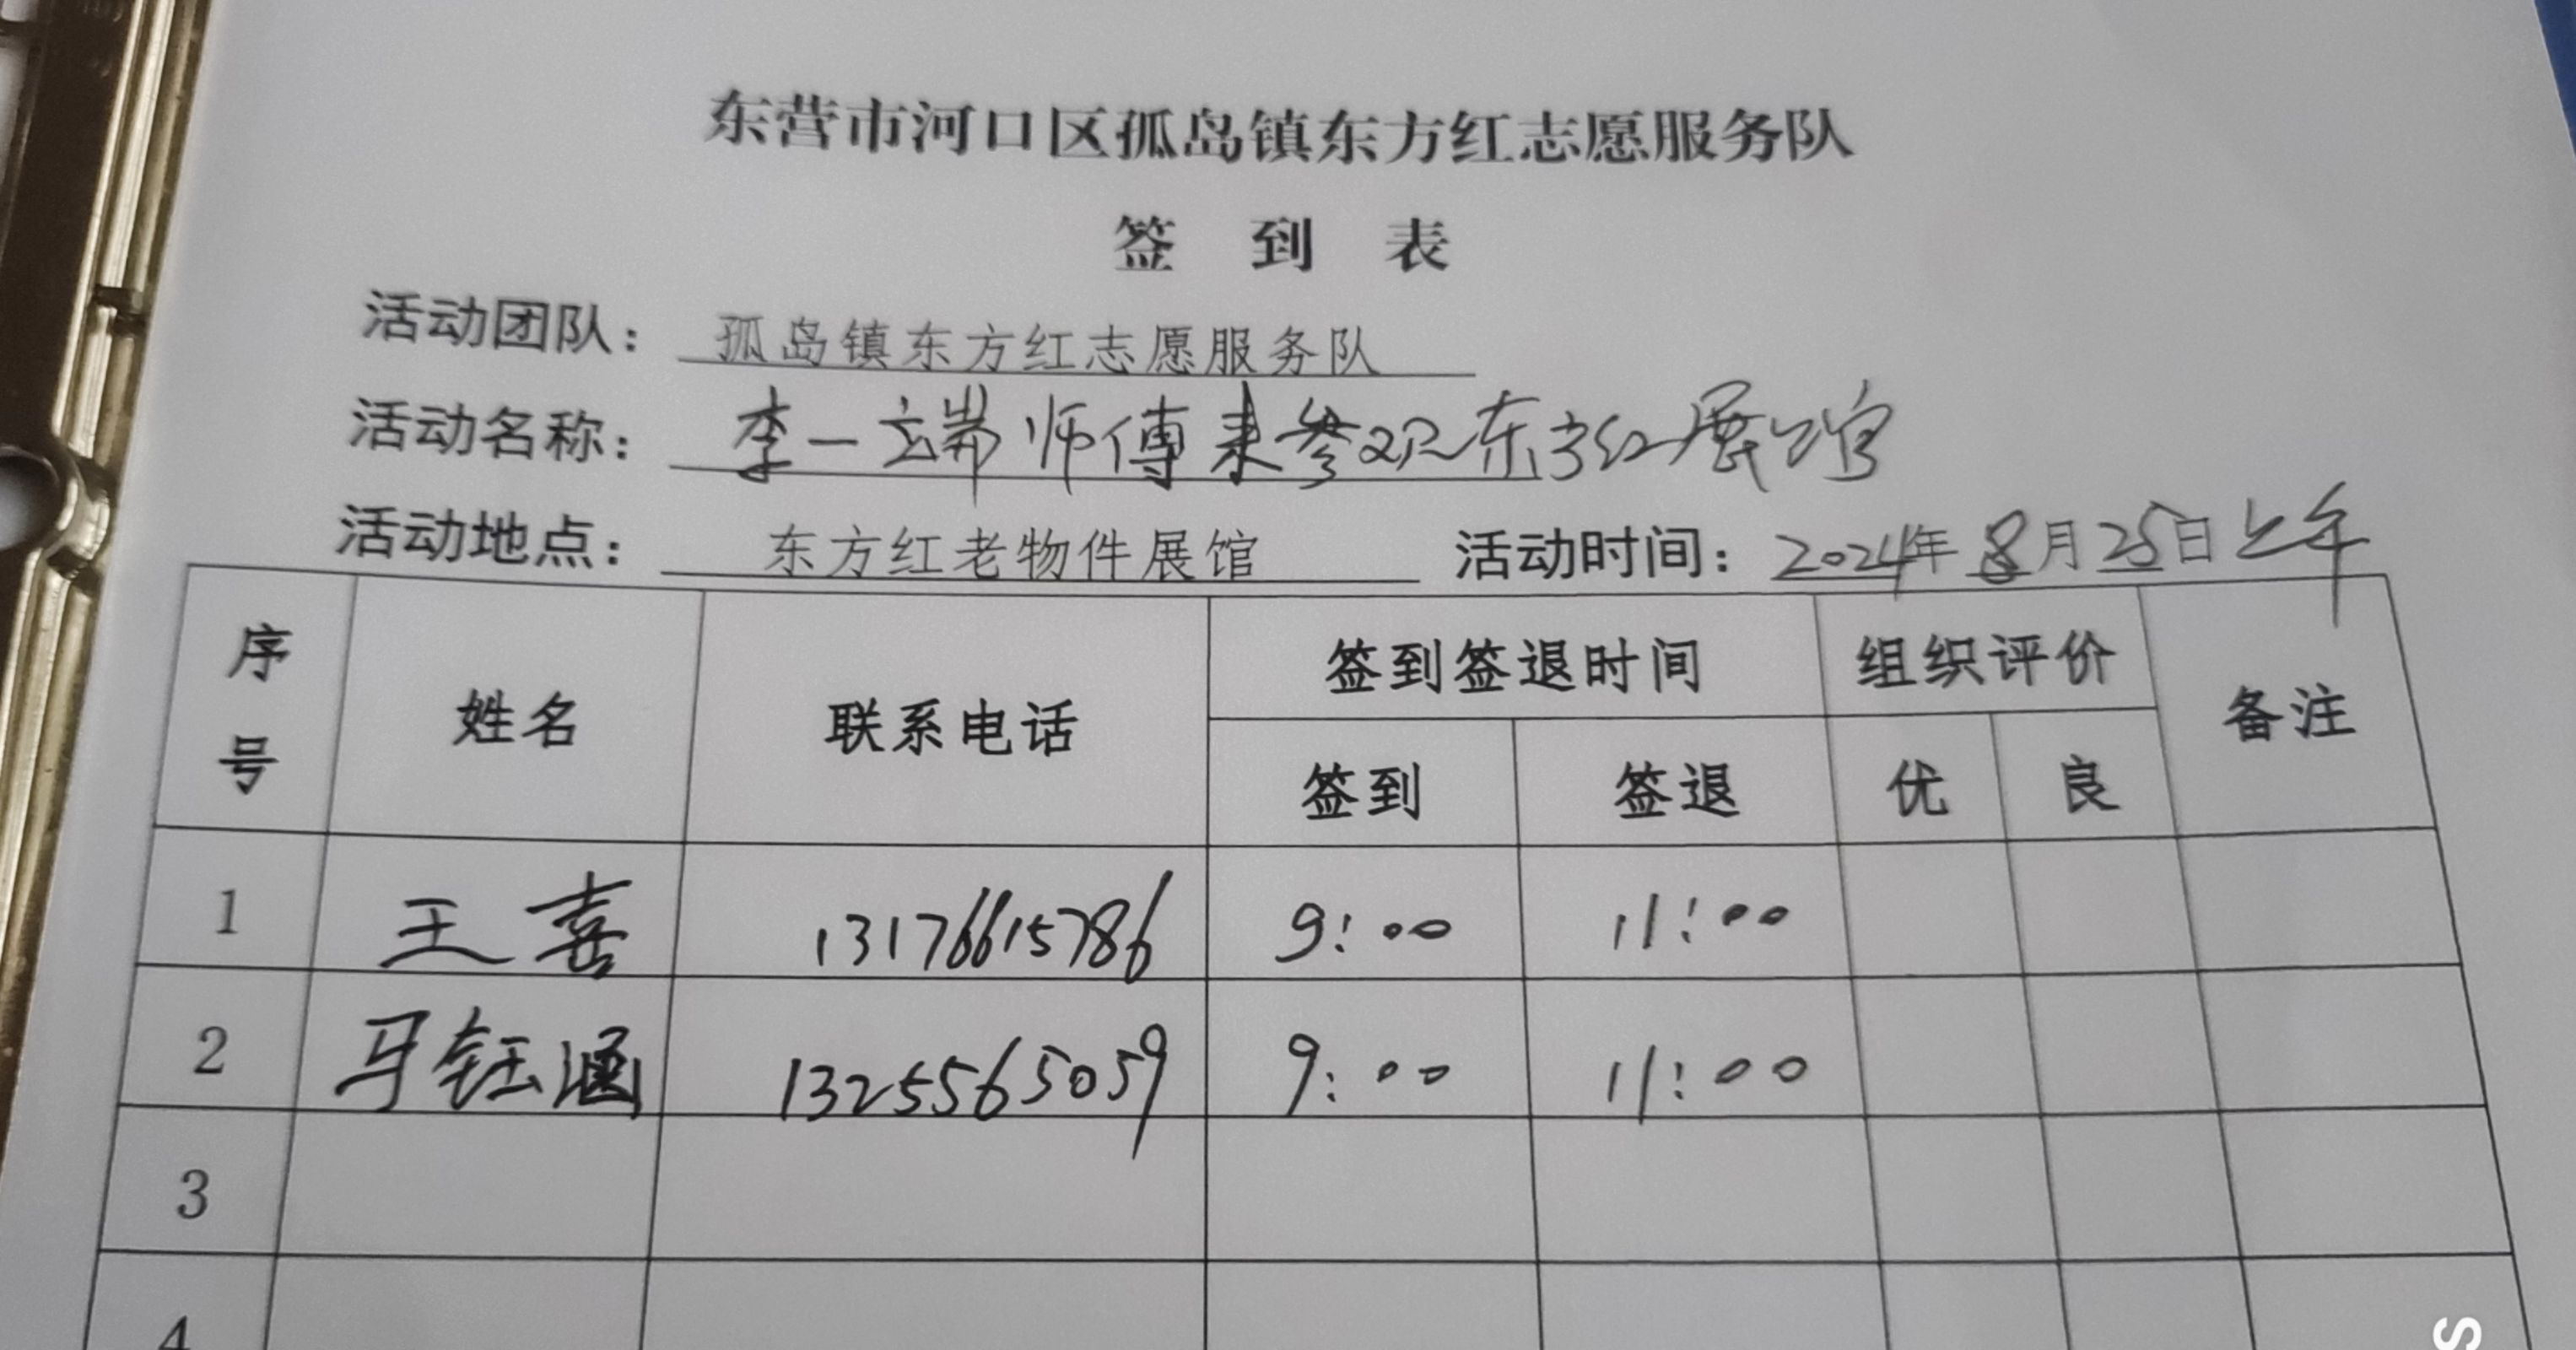 东营市河口区孤岛镇东方红志愿服务队
签到表
活动团队：孤岛镇东方红志愿服务队
活动名称：李一端师傅来参观东方红展馆
活动地点：东方红老物件展馆 活动时间：2024年8月25日上午
序号 姓名 联系电话 签到签退时间 组织评价 备注
签到 签退 优 良
1 王喜 13176615786 9:00 11:00
2 马钰涵 13255565059 9:00 11:00
3
4
S